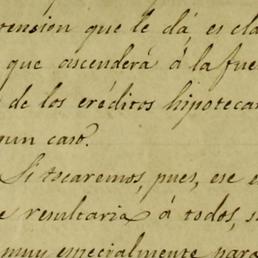 tension que le dá, es cla
que ascenderá á la fue
de los créditos hipoteca
gun caso?
Si tocaremos, pues, ese e
resultaria á todos, s
muy especialmente para